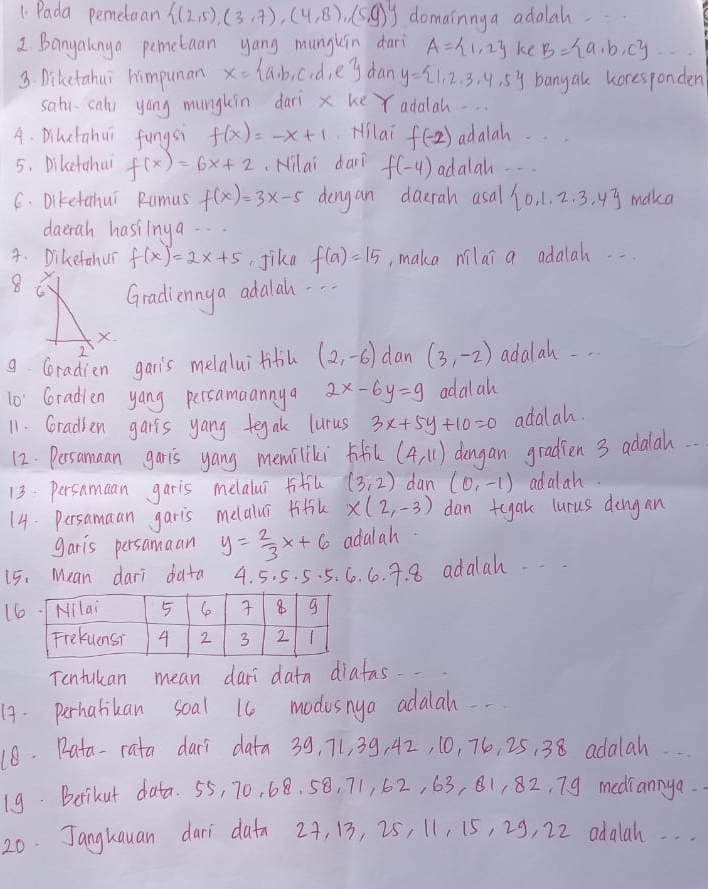 1. Pada pemetaan {(2,5), (3,7), (4,8), (5,9)} domainnya adalah ...
2. Banyaknya pemetaan yang mungkin dari A={1,2} ke B={a,b,c} ...
3. Diketahui himpunan x={a,b,c,d,e} dan y={1,2,3,4,5} banyak koresponden
satu-satu yang mungkin dari x ke Y adalah ...
4. Diketahui fungsi f(x) = -x+1. Nilai f(-2) adalah ...
5. Diketahui f(x) = 6x+2. Nilai dari f(-4) adalah ...
6. Diketahui Rumus f(x)=3x-5 dengan daerah asal {0,1,2,3,4} maka
daerah hasilnya ...
7. Diketahui f(x)=2x+5, jika f(a)=15, maka nilai a adalah ...
8 Y
6 Gradiennya adalah ...
x
2
9. Gradien garis melalui titik (2,-6) dan (3,-2) adalah ...
10. Gradien yang persamaannya 2x-6y=9 adalah
11. Gradien garis yang tegak lurus 3x+5y+10=0 adalah.
12. Persamaan garis yang memiliki titik (4,11) dengan gradien 3 adalah ...
13. Persamaan garis melalui titik (3,2) dan (0,-1) adalah.
14. Persamaan garis melalui titik x(2,-3) dan tegak lurus dengan
garis persamaan y = 2/3 x + 6 adalah.
15. Mean dari data 4.5.5.5.5.6.6.7.8 adalah ...
16. Nilai 5 6 7 8 9
Frekuensi 4 2 3 2 1
Tentukan mean dari data diatas ...
17. perhatikan soal 16 modusnya adalah ...
18. Rata-rata dari data 39,71,39,42,10,76,25,38 adalah ...
19. Berikut data. 55,70,68,58,71,62,63,81,82,79 mediannya ...
20. Jangkauan dari data 27,13,25,11,15,29,22 adalah ...